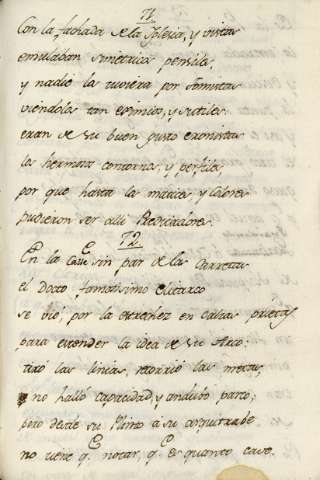 71.
Con la fachada de la Iglesia, y vistas
emulaban simetricos perfiles,
y nadie las tuviera por
viendolas tan y sutiles:
eran de su buen gusto
los hermosos contornos, y perfiles,
por que hasta los matices y colores
pudieron ser alli Predicadores.
72.
En la Calle sin par de las Carretas
el Docto, famosissimo
se vió, por la estrechez en calzas prietas
para extender la idea de su Arco:
tiró las linias, recorrió las metas,
no halló capacidad, y anduvo parco;
pero desde su Plinto a su arquitrabe
no tiene q. notar, q. Es quanto cave.